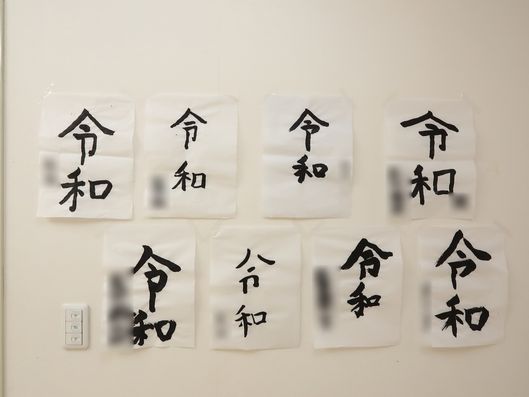 令
和
令
和
令
和
令
和
令
和
令
和
令
和
令
和